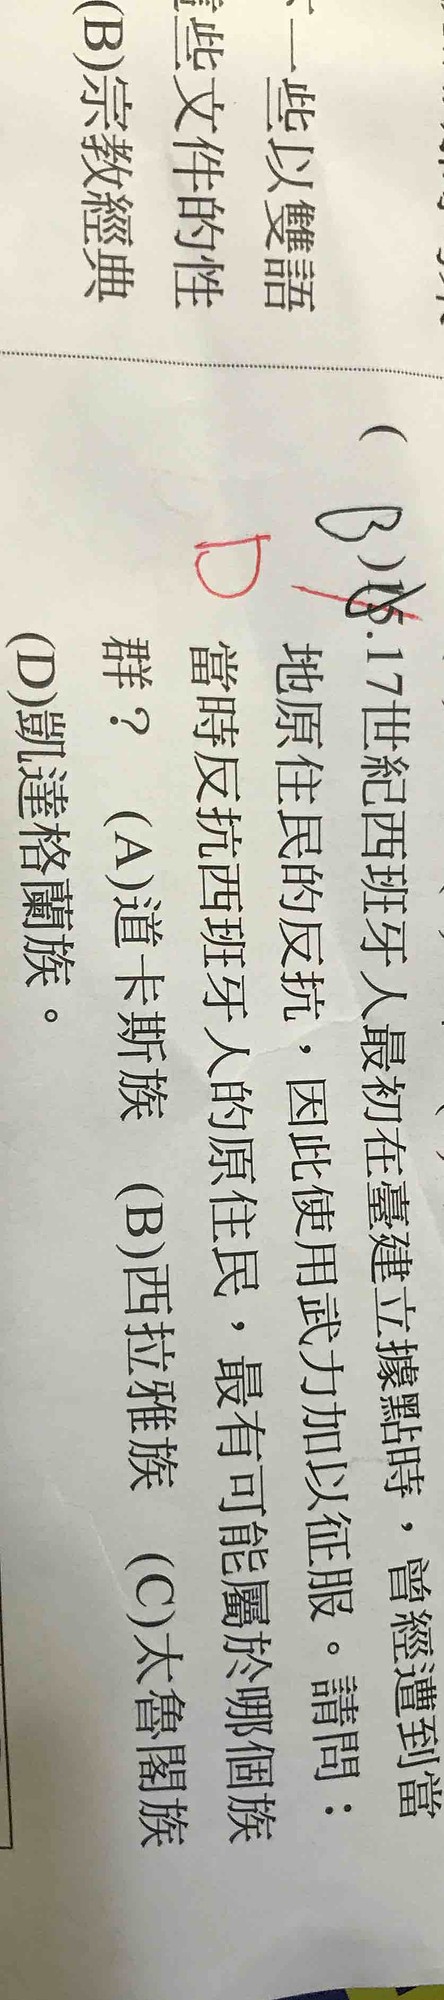 一些以雙語
些文件的性
(B)宗教經典
( B )15.17世紀西班牙人最初在臺建立據點時，曾經遭到當
地原住民的反抗，因此使用武力加以征服。請問：
D
當時反抗西班牙人的原住民，最有可能屬於哪個族
群？ (A)道卡斯族 (B)西拉雅族 (C)太魯閣族
(D)凱達格蘭族。